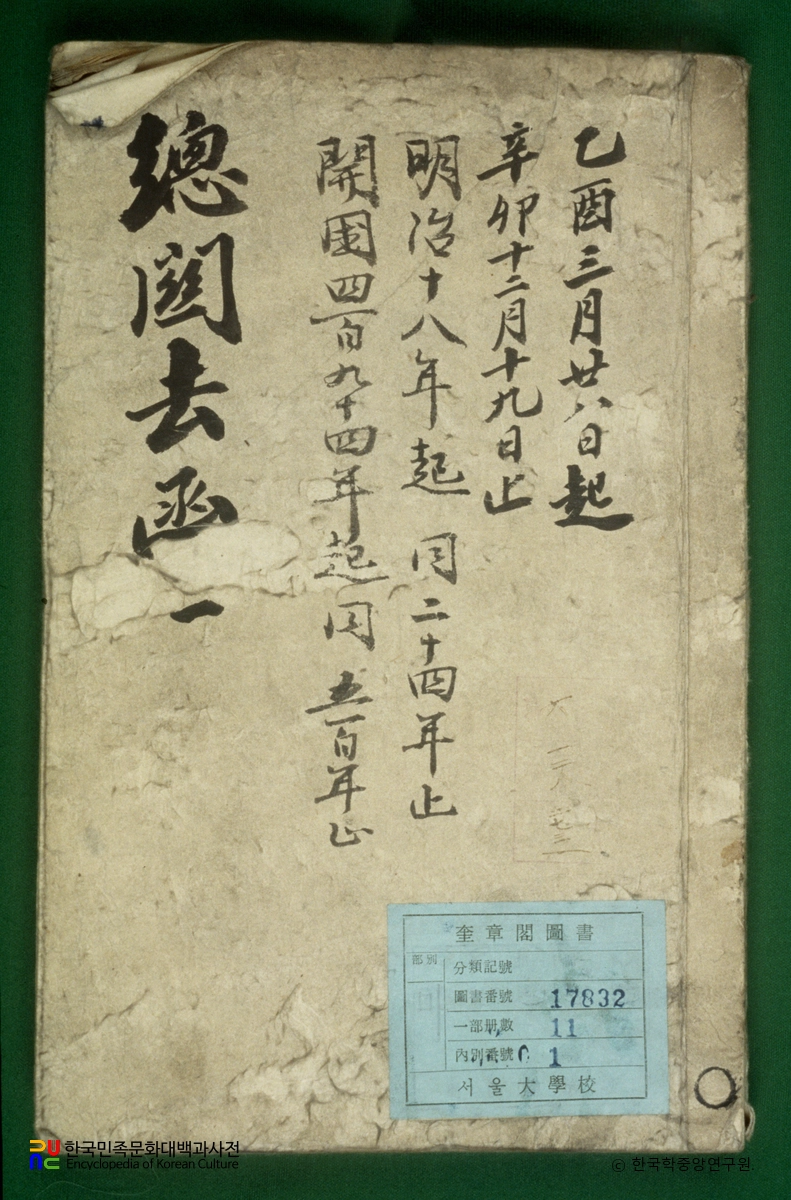 乙酉三月廿八日起
辛卯十二月十九日止
明治十八年起 同二十四年止
開国四百九十四年起同 五百年止
總関去函 一
奎章閣圖書
部別
分類記號
圖書番號 17832
一部册數 11
內別番號 1
서울大學校
한국민족문화대백과사전
Encyclopedia of Korean Culture
© 한국학중앙연구원